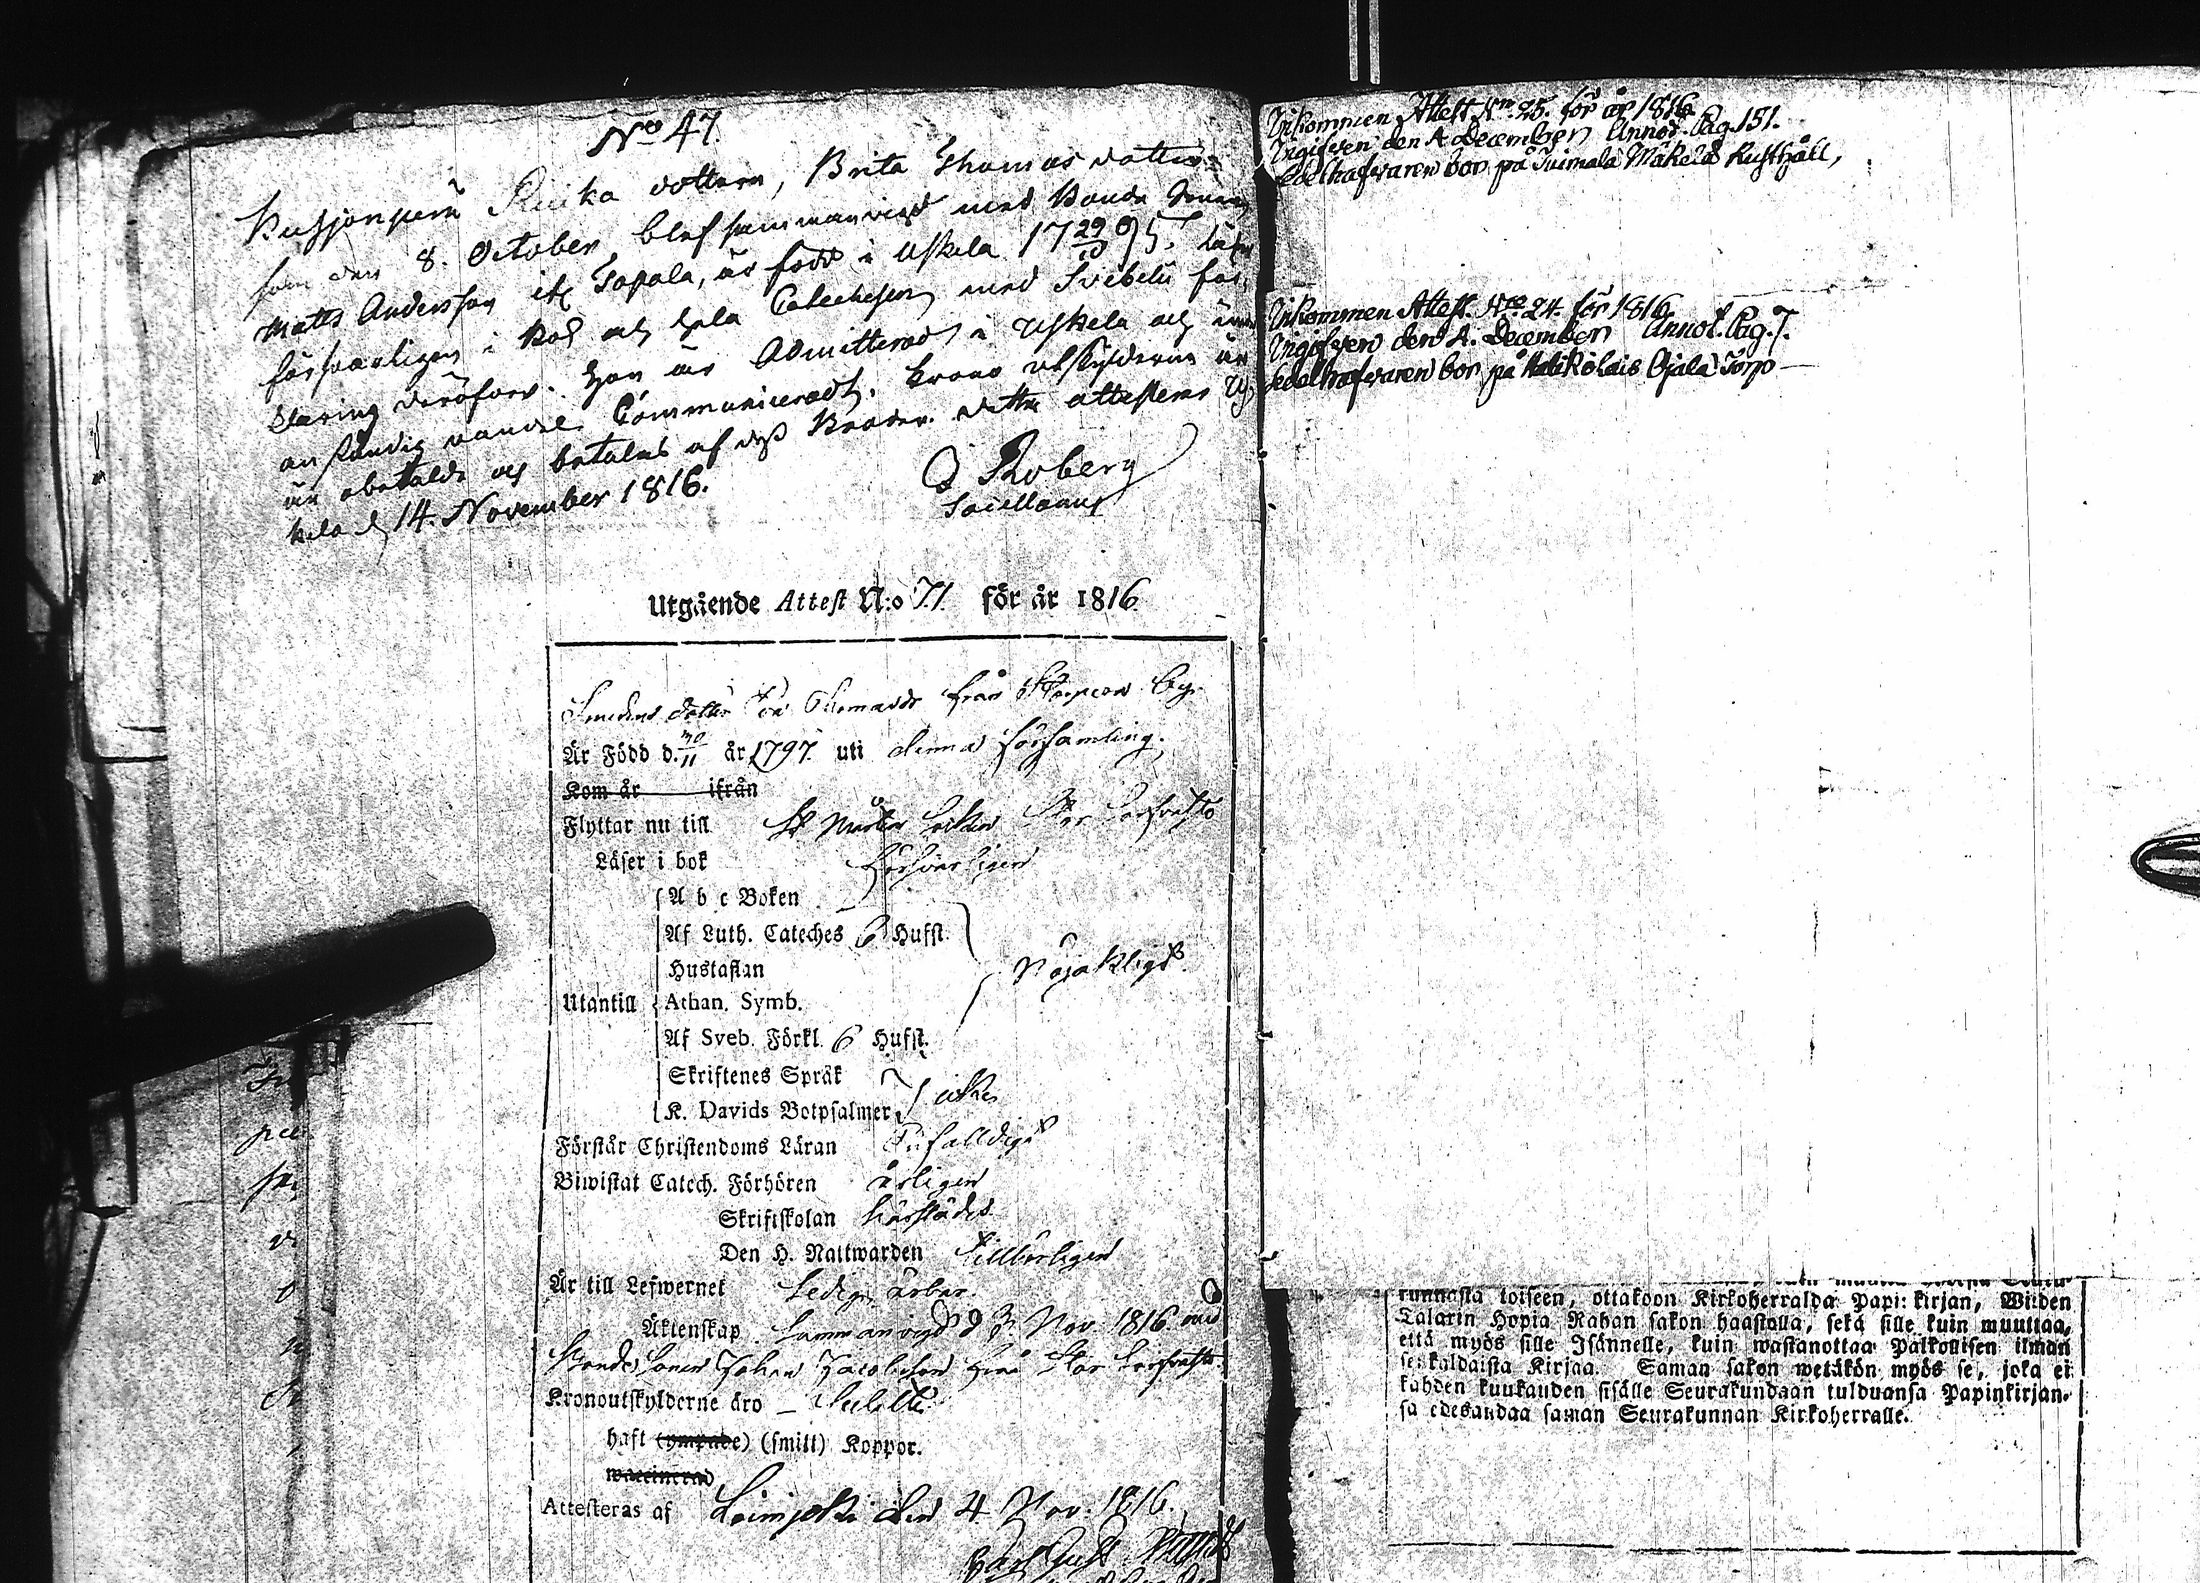 No 47.
dottern, Brita Thomas dotter
som den 8. October blef sammanvigd med Bonde
Matts Andersson ifr Topala, är född i Uskela 17 29/10 95. Läser
försvarligen i Bok och hela Catechesen med Svebelii för-
klaring deröfver. Hon är Admitterad i Uskela och
anständig vandel Communicerat. Krono utskylderne
är obetalde och betalas af dess Broder. Detta attesteras
kela d 14. November 1816.
Roberg
Sacellanus
Utgående Attest N:o 71. för år 1816
Smedens dotter Thomasdr från By.
Är Född d. 30/11 år 1797. uti denna församling.
Kom år ifrån
Flyttar nu till St Mårtens Socken
Läser i bok försvarligen
A b c Boken
Af Luth. Cateches 6 Hufst.
Hustaflan
Nöjakligt
Utantill Athan. Symb.
Af Sveb. Förkl. 6 Hufst.
Skriftenes Språk
K. Davids Botpsalmer icke
Förstår Christendoms Läran Enfalldigt
Biwistat Catech. Förhören årligen
Skriftskolan härstädes
Den H. Nattwarden Tillbörligen
Är till Lefwernet Ledig, ärbar.
Äktenskap Sammanvigd d 3. Nov. 1816. med
Bonde Sonen Johan Jacobsson från Stor
Kronoutskylderne äro
haft (ympade) (smitt) Koppor.
waccinerad
Attesteras af Loimjoki den 4 Nov. 1816.
Carl Gust
Inkommen Attest Nro 25. för år 1816
Ingifven den 4 December Annot. Pag. 151.
Sedelhafvaren bor på Tuimala Mäkelä Rusthåll,
Inkommen Attest. Nro 24. för 1816
Ingifven den 4. December Annot. Pag. 7.
Sedelhafvaren bor på Ojala Torp
runnasta toiseen, ottakoon Kirkoherralda Papi: kirjan, Wiiden
Talarin Hopia Rahan sakon haastalla, sekä sille kuin muuttaa,
että myös sille Isännelle, kuin wastanottaa Palkollisen ilman
senkaldaista Kirjaa. Saman sakon wetäkön myös se, joka ei
kahden kuukauden sisälle Seurakundaan tulduansa Papinkirjan-
sa edesandaa saman Seurakunnan Kirkoherralle.